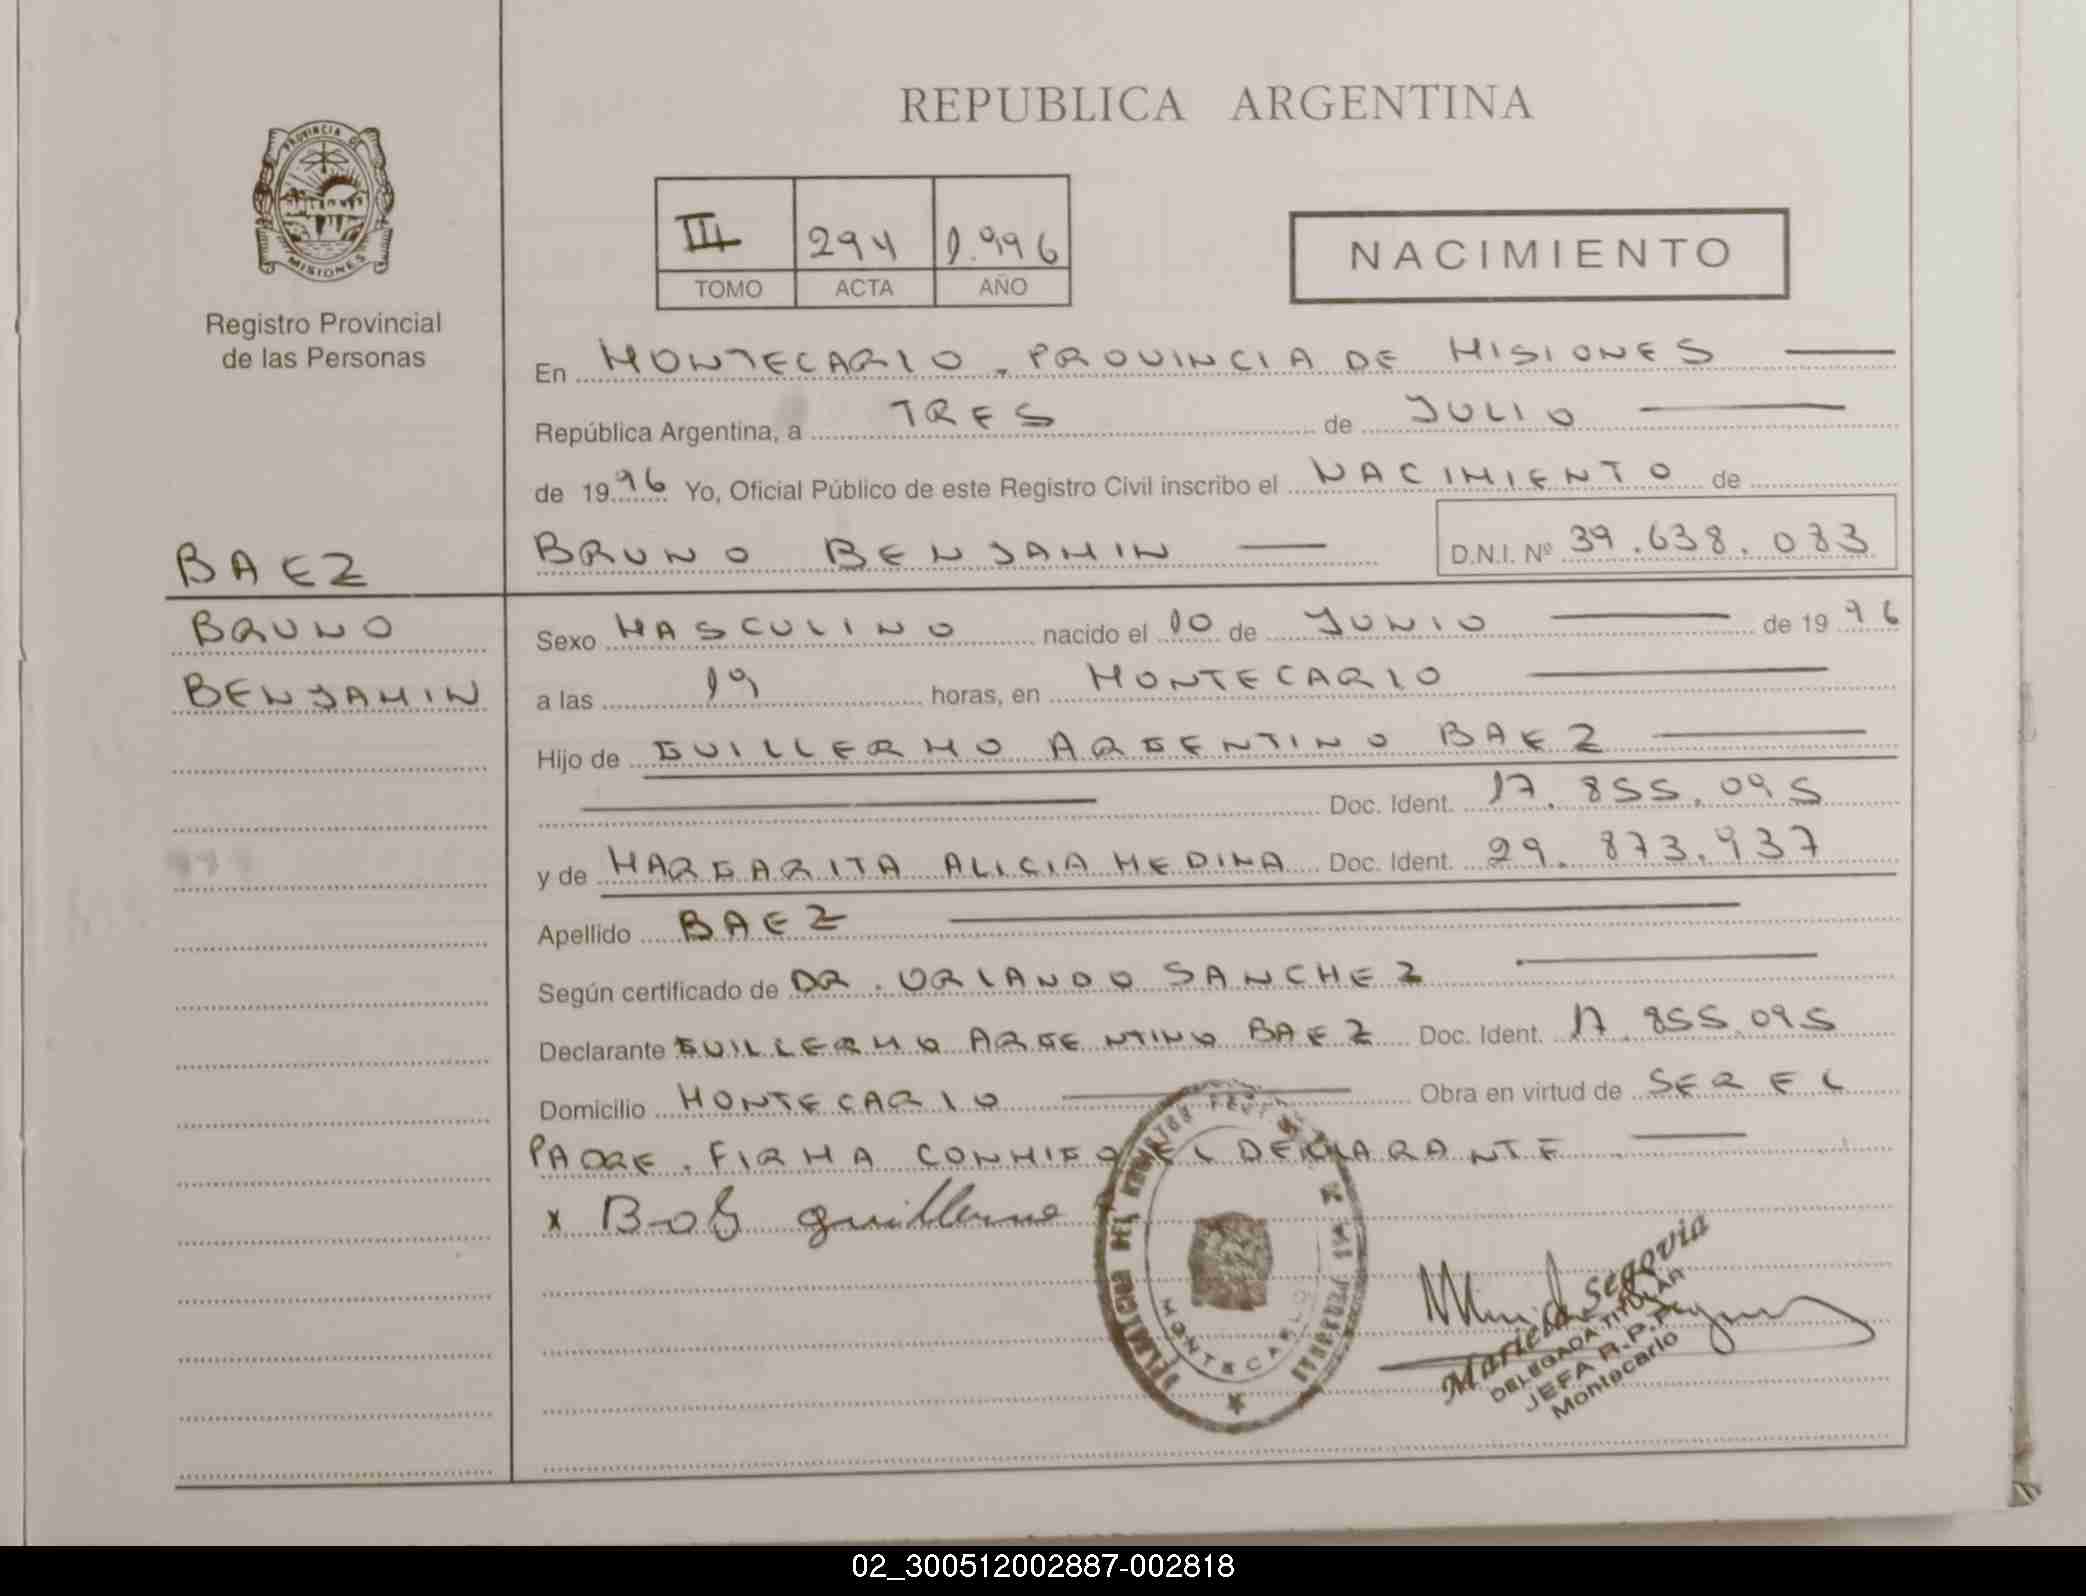 REPUBLICA ARGENTINA
PROVINCIA DE
MISIONES
Registro Provincial
de las Personas
III 294 1.996
TOMO ACTA AÑO
NACIMIENTO
En MONTECARLO. PROVINCIA DE MISIONES
República Argentina, a TRES de JULIO
de 1996 Yo, Oficial Público de este Registro Civil inscribo el NACIMIENTO de
BRUNO BENJAMIN D.N.I. Nº 39.638.083
BAEZ
BRUNO
BENJAMIN
Sexo MASCULINO nacido el 10 de JUNIO de 1996
a las 19 horas, en MONTECARLO
Hijo de GUILLERMO ARGENTINO BAEZ
Doc. Ident. 17.855.095
y de MARGARITA ALICIA MEDINA Doc. Ident. 29.873.937
Apellido BAEZ
Según certificado de DR. ORLANDO SANCHEZ
Declarante GUILLERMO ARGENTINO BAEZ Doc. Ident. 17.855.095
Domicilio MONTECARLO Obra en virtud de SER EL
PADRE. FIRMA CONMIGO EL DECLARANTE
x guillermo
MONTECARLO
Mariela Segovia
DELEGADA TITULAR
JEFA R.P.P.
Montecarlo
02_300512002887-002818